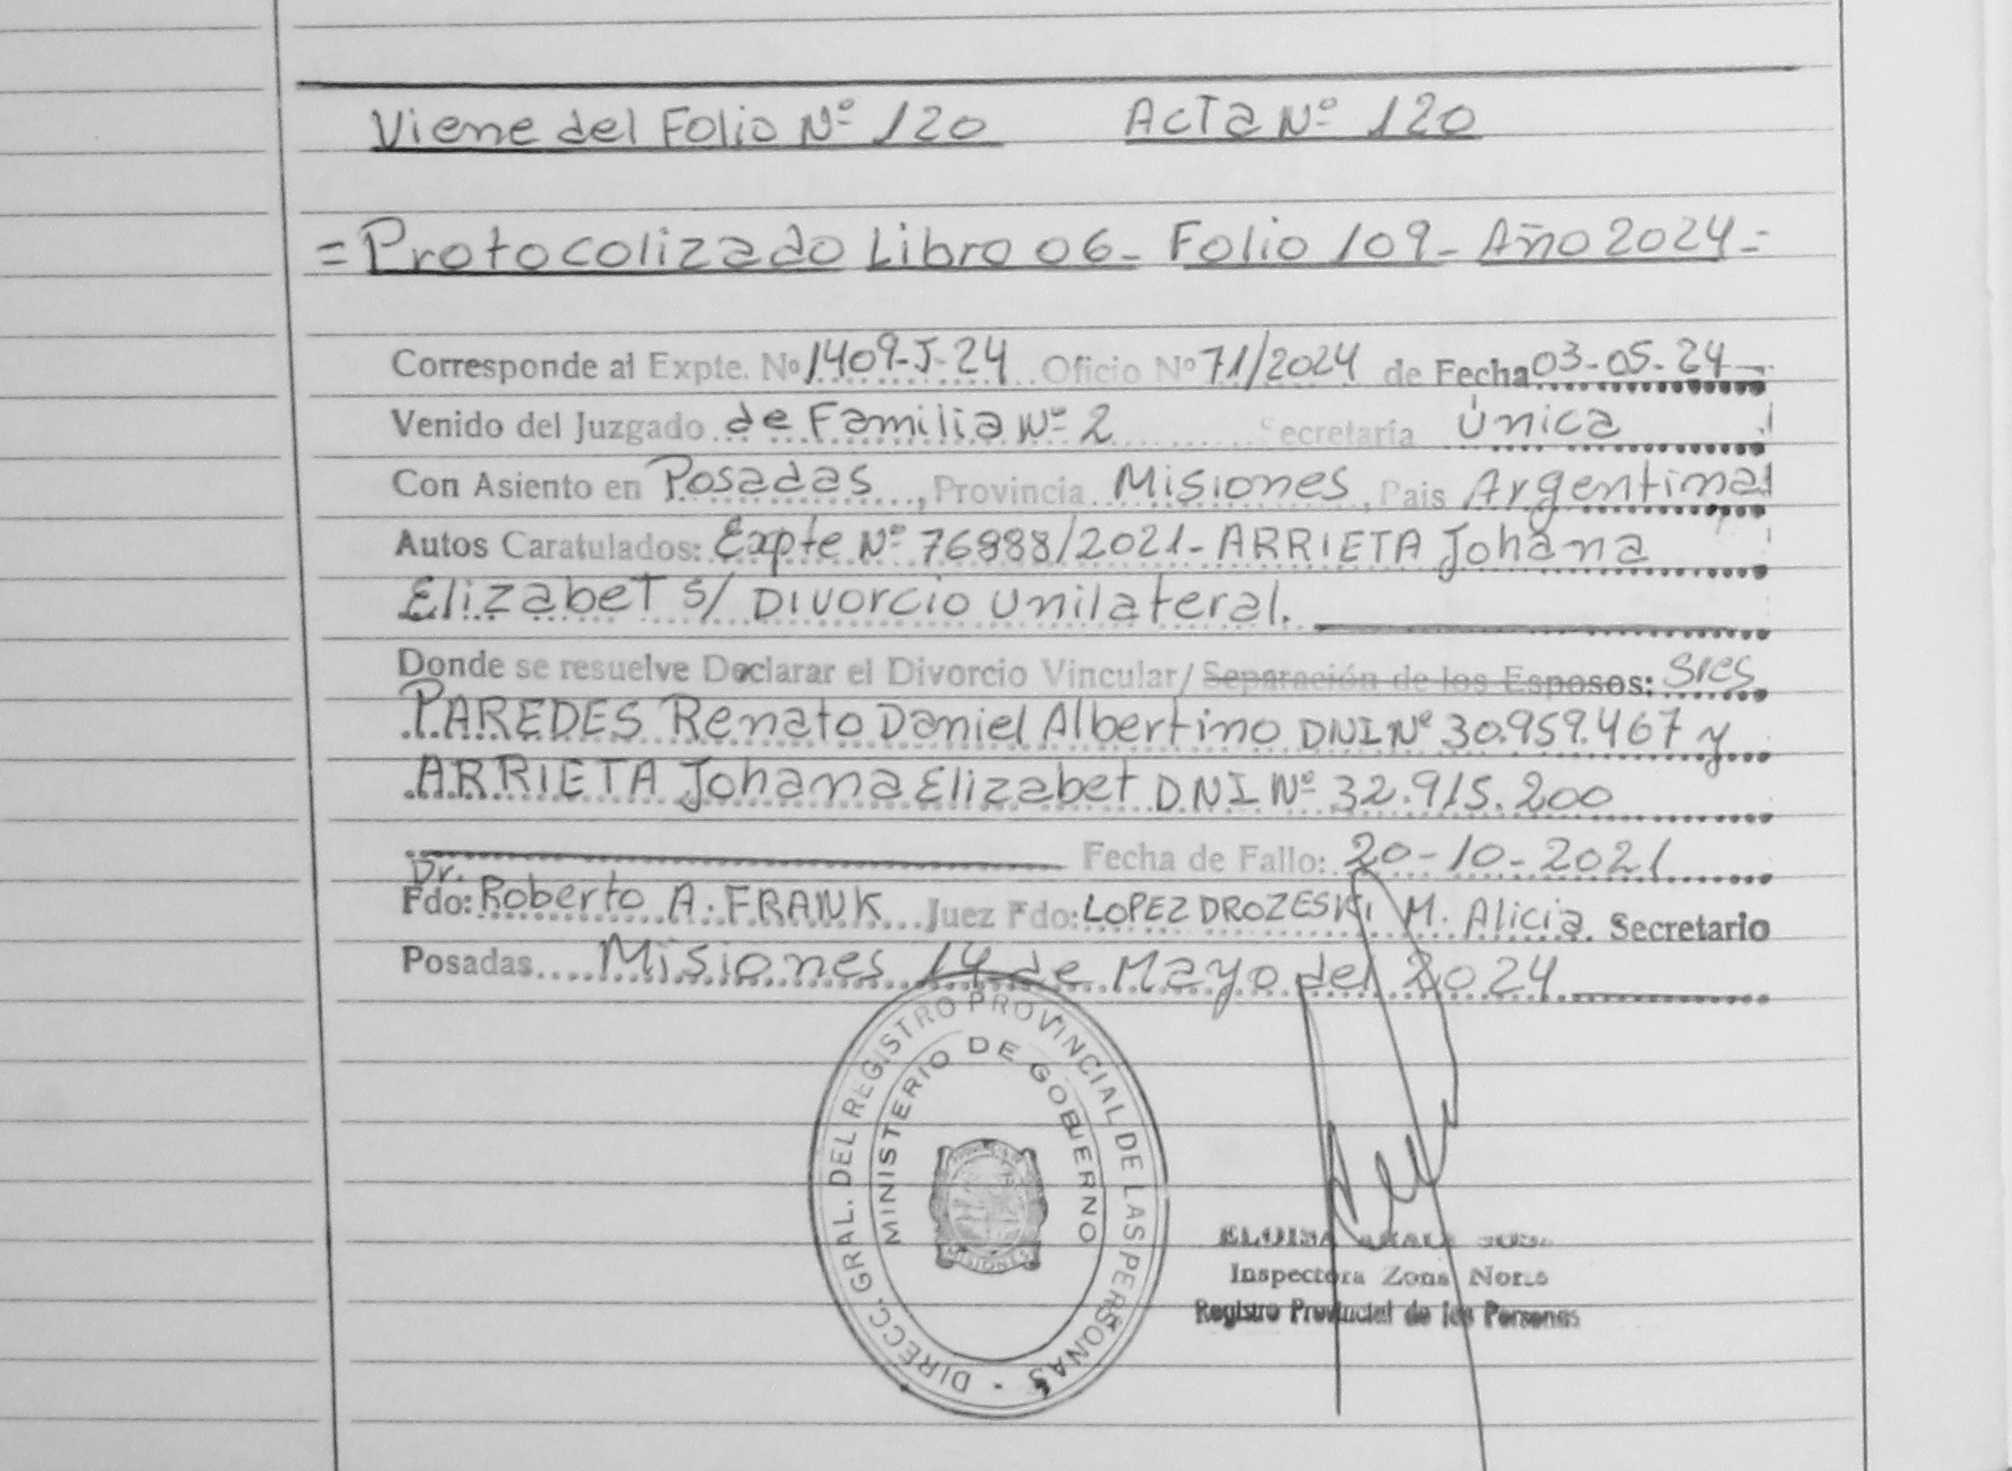 Viene del Folio Nº 120 Acta Nº 120
=Protocolizado Libro 06- Folio 109- Año 2024=
Corresponde al Expte. Nº 1409-J-24 Oficio Nº 71/2024 de Fecha 03-05-24
Venido del Juzgado de Familia Nº 2 Secretaría Única
Con Asiento en Posadas, Provincia Misiones, Pais Argentina
Autos Caratulados: Expte Nº 76988/2021- ARRIETA Johana
Elizabet s/ Divorcio Unilateral.
Donde se resuelve Declarar el Divorcio Vincular/ Separación de los Esposos: Sres
PAREDES Renato Daniel Albertino DNI Nº 30.959.467 y
ARRIETA Johana Elizabet DNI Nº 32.915.200
Fecha de Fallo: 20-10-2021
Fdo: Dr. Roberto A. FRANK Juez Fdo: LOPEZ DROZESKI M. Alicia. Secretario
Posadas Misiones 14 de Mayo del 2024
DIRECC. GRAL. DEL REGISTRO PROVINCIAL DE LAS PERSONAS
MINISTERIO DE GOBIERNO
MISIONES
ELOISA
Inspectora Zona Norte
Registro Provincial de las Personas